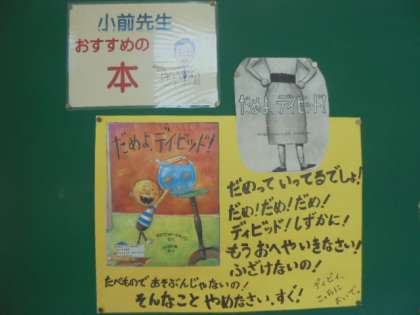 小前先生
おすすめの
本
だめよ、デイビッド!
だめよ、デイビッド!
だめって いってるでしょ!
だめ!だめ!だめ!
デイビッド!しずかに!
もう おへや いきなさい!
ふざけないの!
たべもので あそぶんじゃないの!
そんなこと やめなさい、すぐ!
デイビィ、
こっちに
おいで。